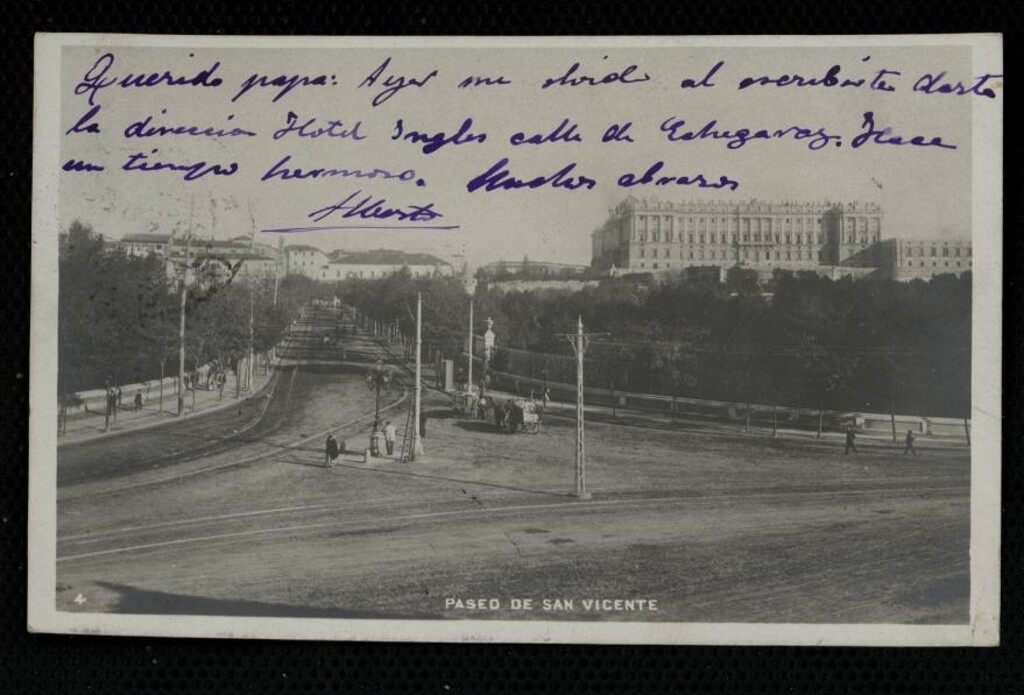 Querido papa: Ayer me olvidé al escribirte darte
la dirección Hotel Ingles calle de Echegaray. Hace
un tiempo hermoso. Muchos abrazos
Alberto
4
PASEO DE SAN VICENTE